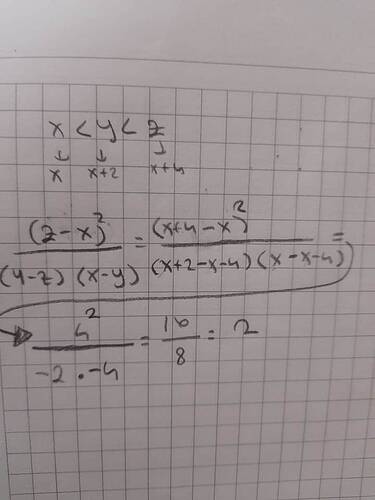 x < y < z
↓ ↓ ↓
x x+2 x+4
(z-x)² / (y-z) (x-y) = (x+4-x)² / (x+2-x-4) (x-x-4) =
→ 4² / -2 · -4 = 16 / 8 = 2